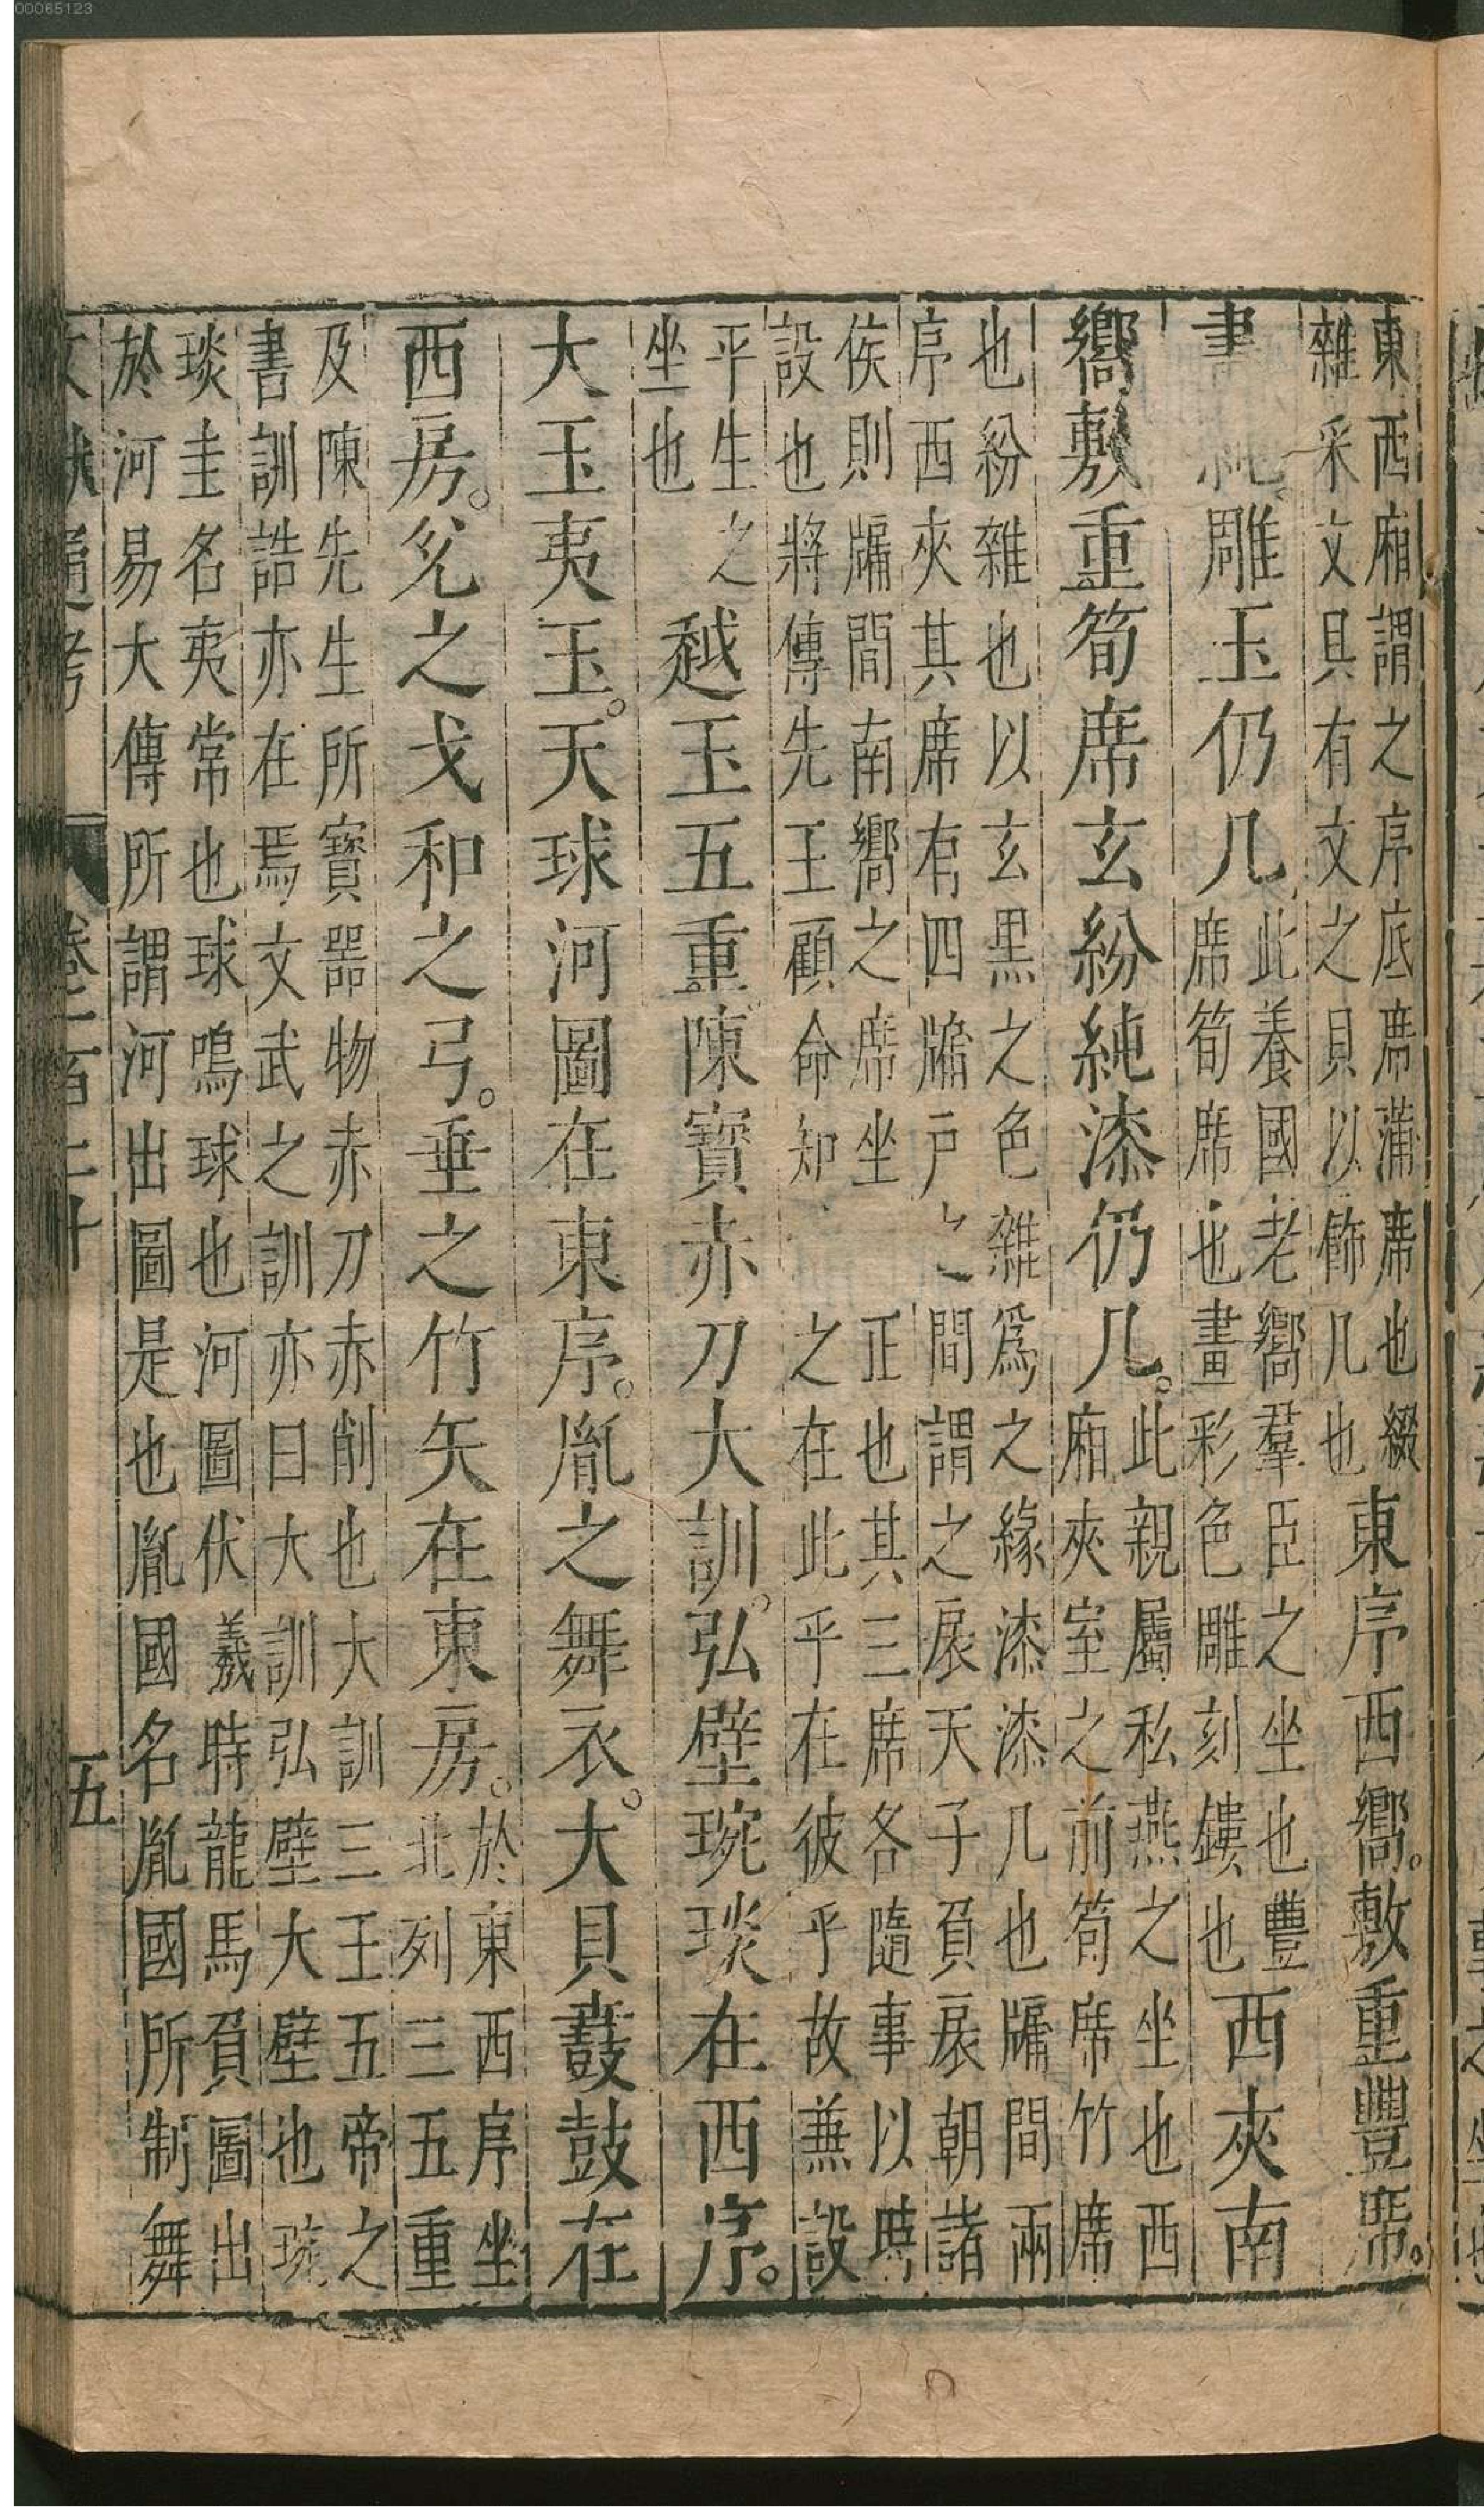 東西廂謂之序底席蒲席也綴
雜采文具有文之貝以飾几也
東序西嚮。敷重豐席。
畫純。雕玉仍几
此養國老嚮羣臣之坐也豐
席筍席也畫彩色雕刻鏤也
西夾南
嚮敷重筍席玄紛純漆仍几。
此親屬私燕之坐也西
廂夾室之前筍席竹席
也紛雜也以玄黑之色雜爲之緣漆漆几也牖間兩
序西夾其席有四牖戶之間謂之扆天子負扆朝諸
侯則牖間南嚮之席坐正也其三席各隨事以時
設也將傳先王顧命知之在此乎在彼乎故兼設
平生之
坐也
越玉五重陳寶赤刀大訓。弘璧琬琰在西序。
大玉夷玉。天球河圖在東序。胤之舞衣。大貝鼖鼓在
西房。兊之戈和之弓。垂之竹矢在東房。
於東西序坐
北列三五重
及陳先生所寶器物赤刀赤削也大訓三王五帝之
書訓誥亦在焉文武之訓亦曰大訓弘璧大璧也琬
琰圭名夷常也球鳴球也河圖伏羲時龍馬負圖出
於河易大傳所謂河出圖是也胤國名胤國所制舞
文獻通考
五
00065123